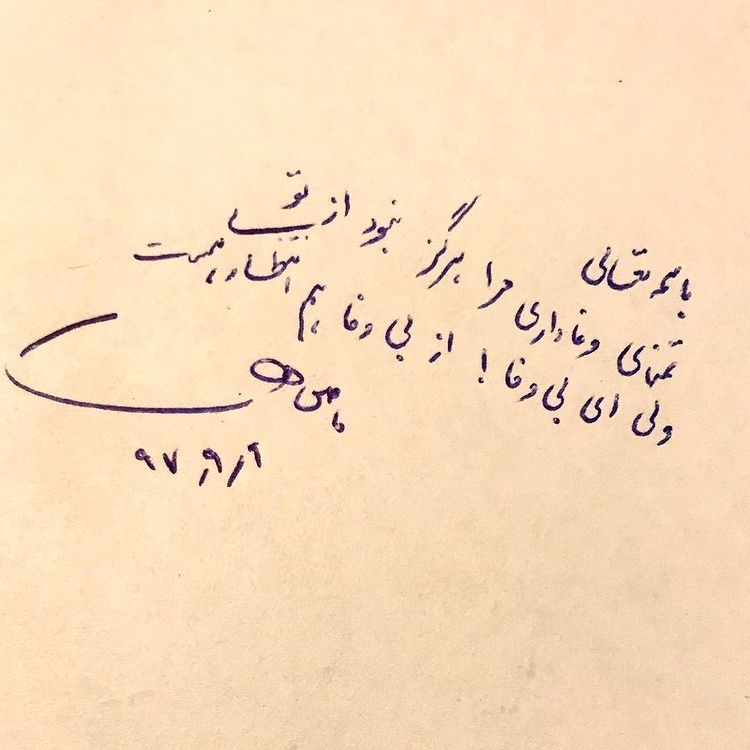 باسمه تعالی
تمنای وفاداری مرا هرگز نبود از تو
ولی ای بی وفا ! از بی وفا هم انتظاری هست
۹۷٫۹٫۹